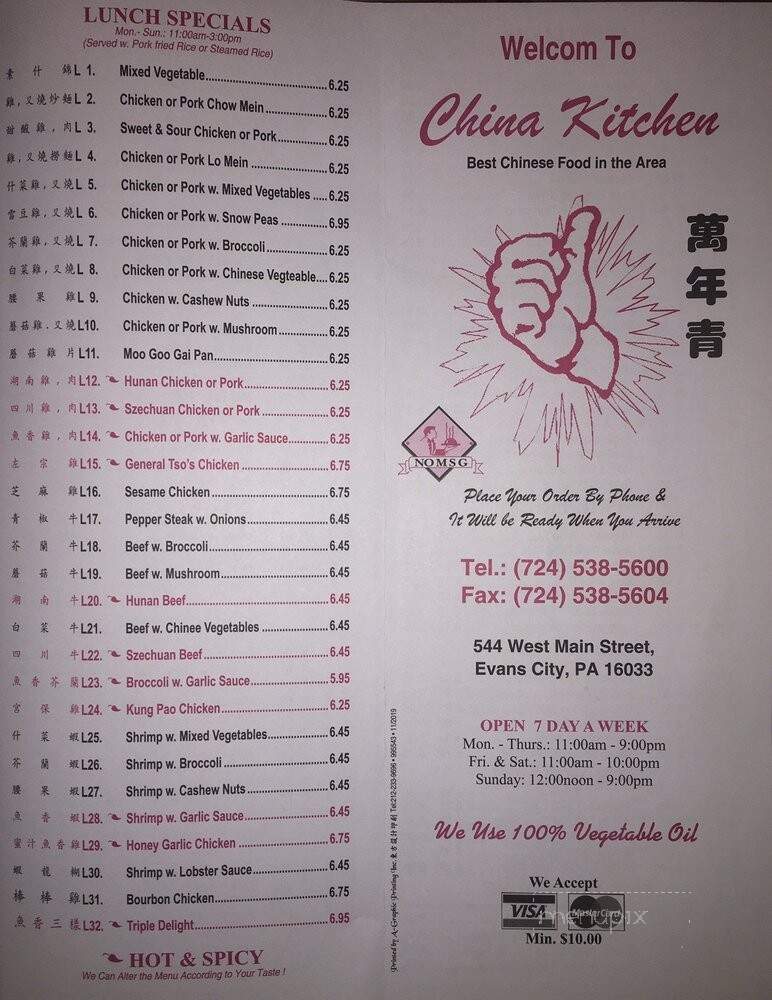 LUNCH SPECIALS
Mon.- Sun.: 11:00am-3:00pm
(Served w. Pork fried Rice or Steamed Rice)
素什錦 L 1. Mixed Vegetable 6.25
雞,叉燒炒麵 L 2. Chicken or Pork Chow Mein 6.25
甜酸雞,肉 L 3. Sweet & Sour Chicken or Pork 6.25
雞,叉燒撈麵 L 4. Chicken or Pork Lo Mein 6.25
什菜雞,叉燒 L 5. Chicken or Pork w. Mixed Vegetables 6.25
雪豆雞,叉燒 L 6. Chicken or Pork w. Snow Peas 6.95
芥蘭雞,叉燒 L 7. Chicken or Pork w. Broccoli 6.25
白菜雞,叉燒 L 8. Chicken or Pork w. Chinese Vegteable 6.25
腰果雞 L 9. Chicken w. Cashew Nuts 6.25
蘑菇雞.叉燒 L10. Chicken or Pork w. Mushroom 6.25
蘑菇雞片 L11. Moo Goo Gai Pan 6.25
湖南雞,肉 L12. Hunan Chicken or Pork 6.25
四川雞,肉 L13. Szechuan Chicken or Pork 6.25
魚香雞,肉 L14. Chicken or Pork w. Garlic Sauce 6.25
左宗雞 L15. General Tso's Chicken 6.75
芝麻雞 L16. Sesame Chicken 6.75
青椒牛 L17. Pepper Steak w. Onions 6.45
芥蘭牛 L18. Beef w. Broccoli 6.45
蘑菇牛 L19. Beef w. Mushroom 6.45
湖南牛 L20. Hunan Beef 6.45
白菜牛 L21. Beef w. Chinee Vegetables 6.45
四川牛 L22. Szechuan Beef 6.45
魚香芥蘭 L23. Broccoli w. Garlic Sauce 5.95
宮保雞 L24. Kung Pao Chicken 6.25
什菜蝦 L25. Shrimp w. Mixed Vegetables 6.45
芥蘭蝦 L26. Shrimp w. Broccoli 6.45
腰果蝦 L27. Shrimp w. Cashew Nuts 6.45
魚香蝦 L28. Shrimp w. Garlic Sauce 6.45
蜜汁魚香雞 L29. Honey Garlic Chicken 6.75
蝦龍糊 L30. Shrimp w. Lobster Sauce 6.45
棒棒雞 L31. Bourbon Chicken 6.75
魚香三樣 L32. Triple Delight 6.95
HOT & SPICY
We Can Alter the Menu According to Your Taste !
Printed by A+ Graphic Printing Inc. Tel:212-233-9696 • 999543 • 11/2019
Welcom To
China Kitchen
Best Chinese Food in the Area
萬年青
NO MSG
Place Your Order By Phone &
It Will be Ready When You Arrive
Tel.: (724) 538-5600
Fax: (724) 538-5604
544 West Main Street,
Evans City, PA 16033
OPEN 7 DAY A WEEK
Mon. - Thurs.: 11:00am - 9:00pm
Fri. & Sat.: 11:00am - 10:00pm
Sunday: 12:00noon - 9:00pm
We Use 100% Vegetable Oil
We Accept
VISA MasterCard
menupix
Min. $10.00